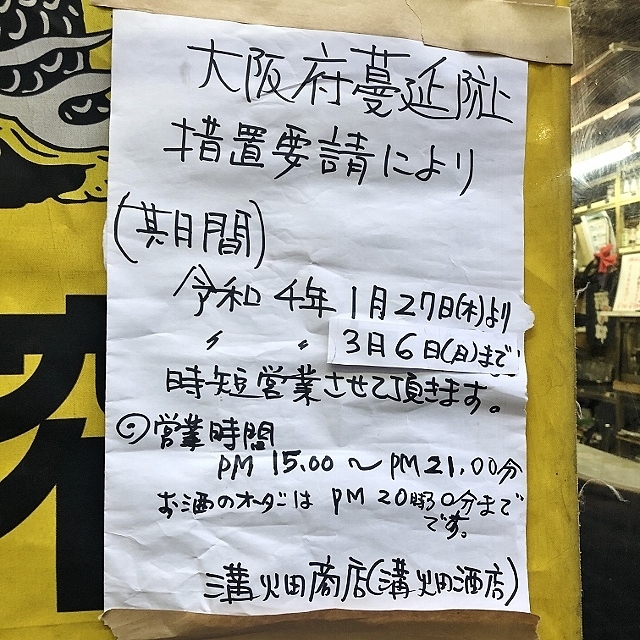 大阪府蔓延防止
措置要請により
(期間)
令和4年 1月27日(木)より
〃 〃 3月6日(日)まで
時短営業させて頂きます。
◎営業時間
PM 15.00～PM 21.00分
お酒のオーダーは PM 20時30分まで
です。
溝畑商店(溝畑酒店)